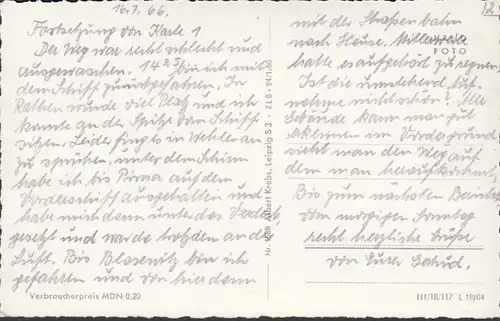 16.7.66.
2
Fortsetzung von Karte 1
Der Weg war recht schlecht und
ausgewaschen. 14 25 bin ich mit
dem Schiff zurückgefahren. In
Rathen wurde viel Platz und ich
konnte an der Spitze vom Schiff
sitzen. Leider fing es in Wehlen an
zu sprühen, unter dem Schirm
habe ich bis Pirna auf dem
Vorderschiff ausgehalten und
habe mich dann unter das Verdeck
gesetzt und war da trotzdem an der
Luft. Bis Blasewitz bin ich
gefahren und von hier dann
Verbraucherpreis MDN 0,20
Nr. Albert Krebs, Leipzig S 3 - ZLB - 24/1/60
mit der Straßenbahn
nach Hause. Mittlerweile
FOTO
hatte es aufgehört zu regnen.
Ist die umstehend Auf-
nahme nicht schön? Alle
kann man gut
erkennen im Vordergrund
sieht man den Weg auf
dem man heraufkommt.
Bis zum nächsten
vom morgigen Sonntag
recht herzliche Grüße
von Eurer
III/18/117 L 18/64